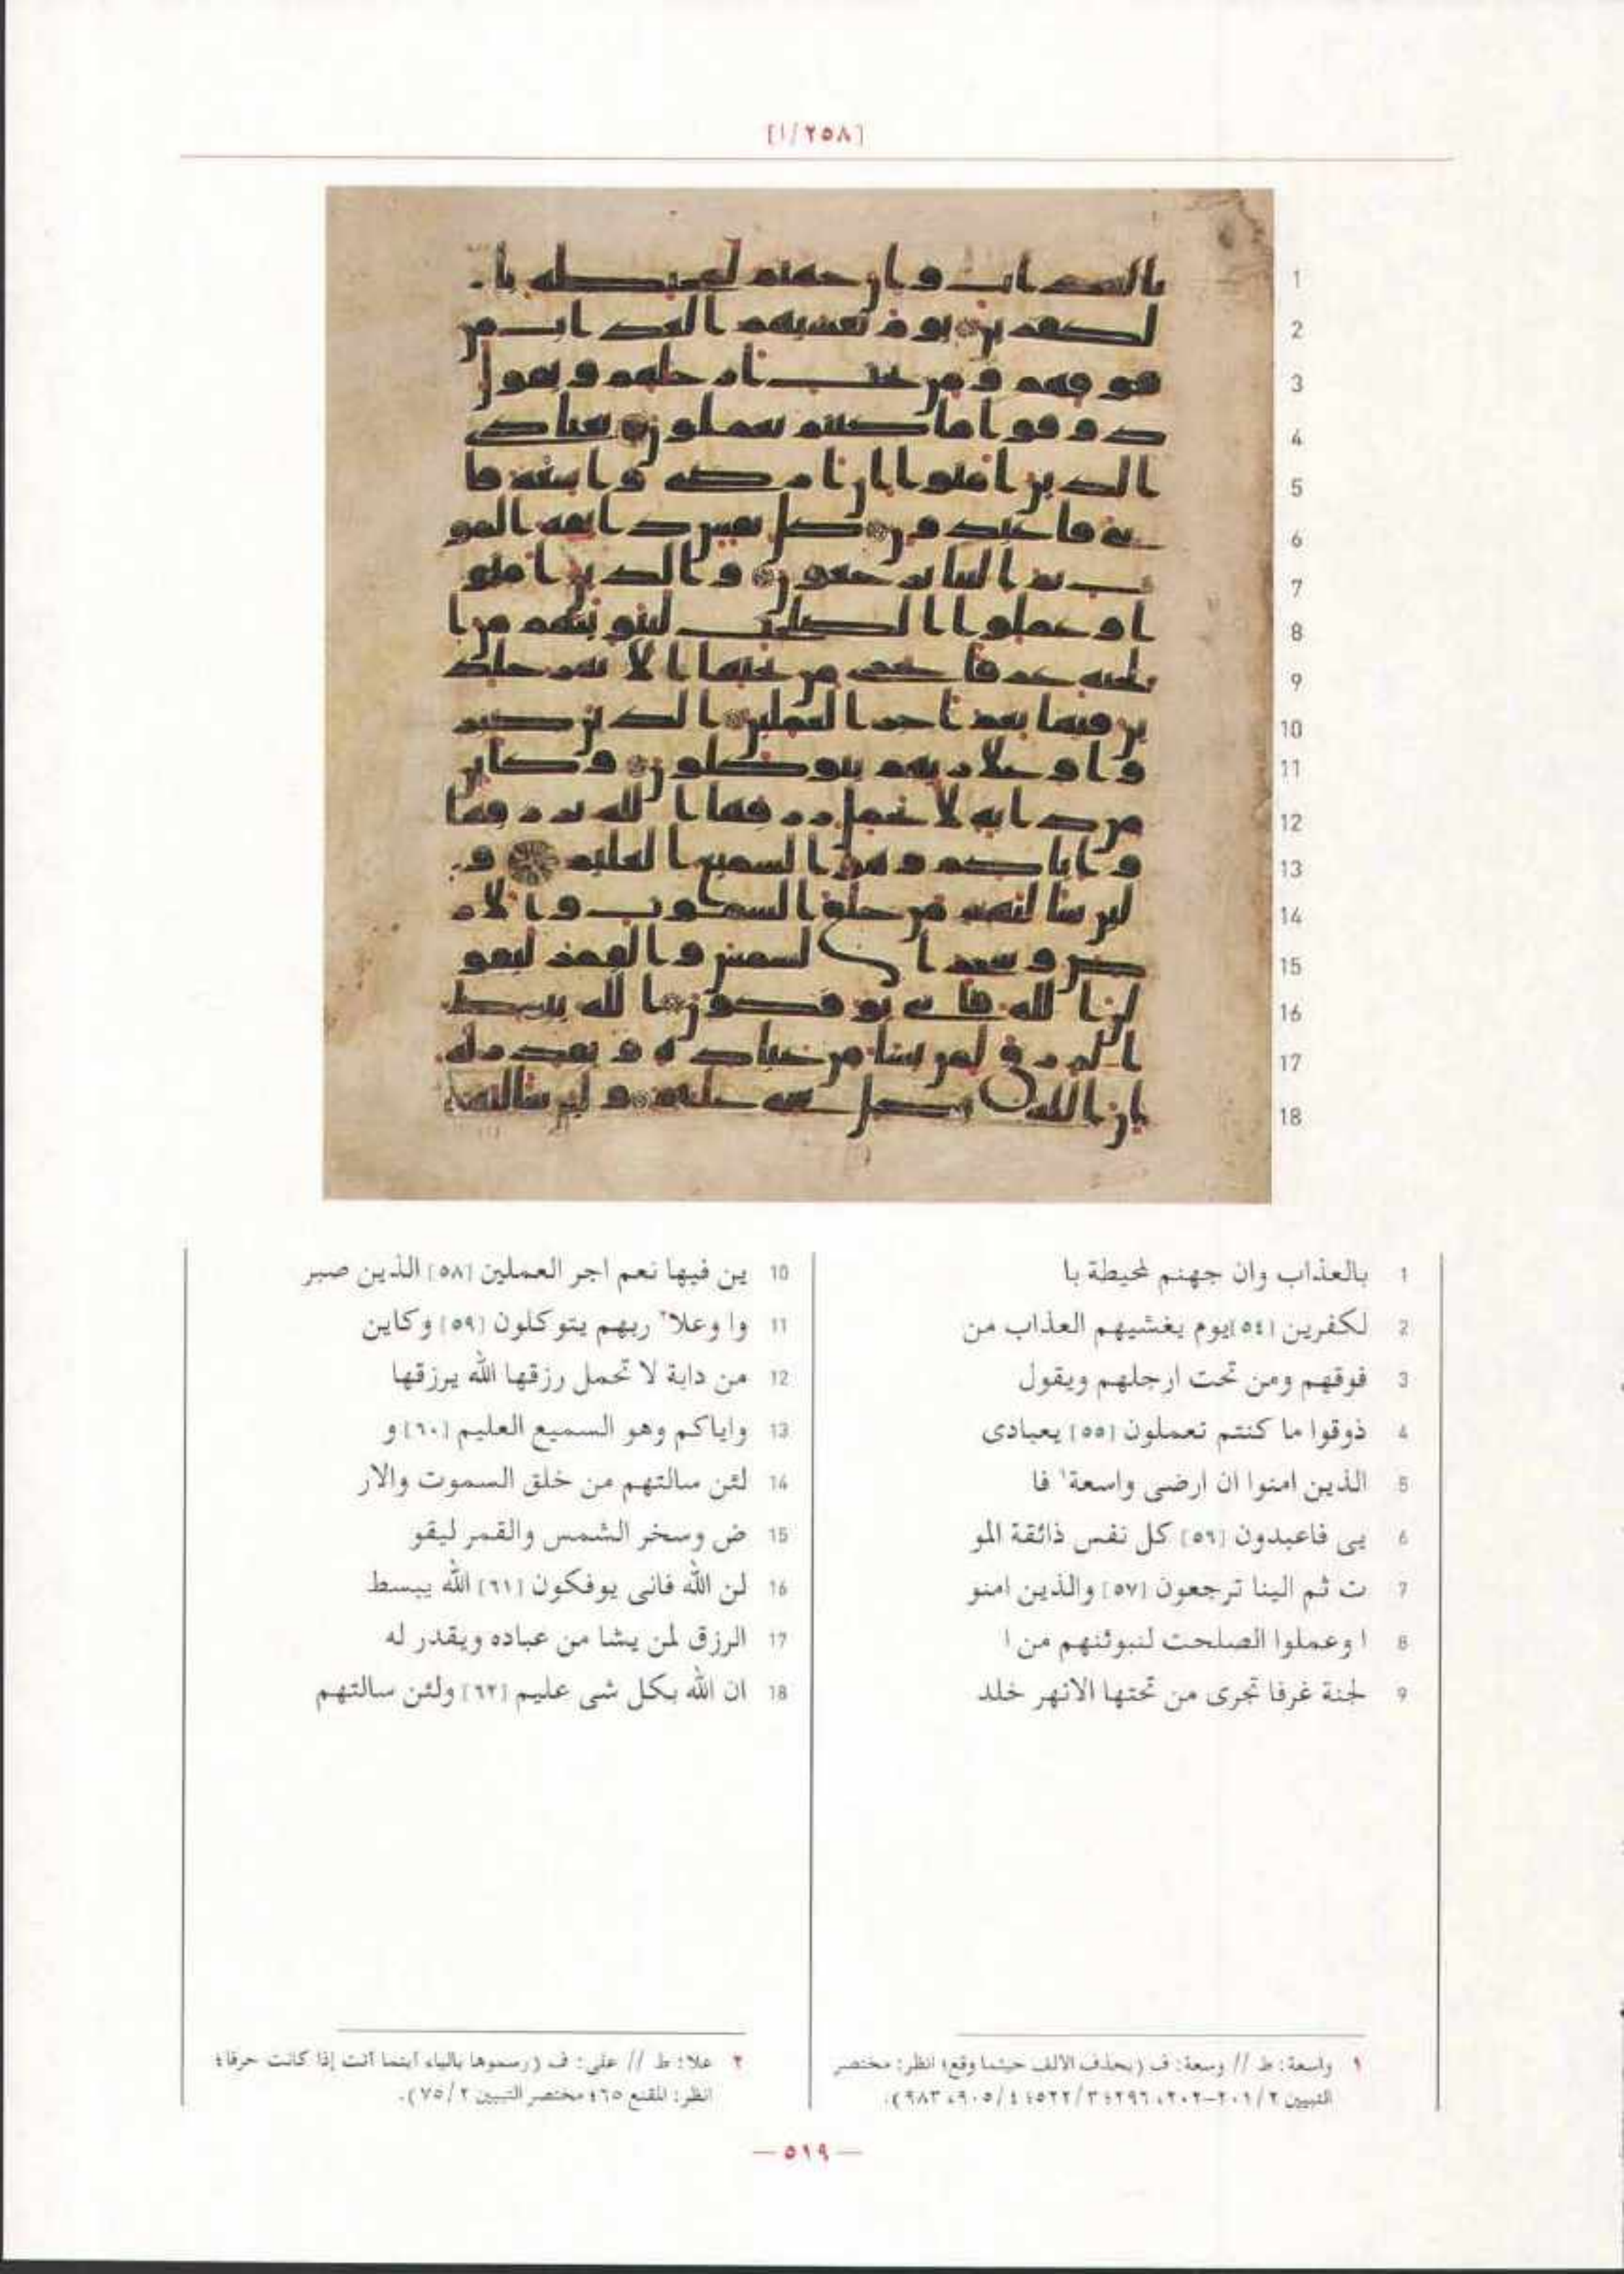 [١/٢٥٨]
1 بالعذاب وان جهنم لمحيطة با
2 لكفرين [٥٤] يوم يغشيهم العذاب من
3 فوقهم ومن تحت ارجلهم ويقول
4 ذوقوا ما كنتم تعملون [٥٥] يعبادى
5 الذين امنوا ان ارضى واسعة١ فا
6 يى فاعبدون [٥٦] كل نفس ذائقة المو
7 ت ثم الينا ترجعون [٥٧] والذين امنو
8 ا وعملوا الصلحت لنبوئنهم من ا
9 لجنة غرفا تجرى من تحتها الانهر خلد
10 ين فيها نعم اجر العملين [٥٨] الذين صبر
11 وا وعلا٢ ربهم يتوكلون [٥٩] وكاين
12 من دابة لا تحمل رزقها الله يرزقها
13 واياكم وهو السميع العليم [٦٠] و
14 لئن سالتهم من خلق السموت والار
15 ض وسخر الشمس والقمر ليقو
16 لن الله فانى يوفكون [٦١] الله يبسط
17 الرزق لمن يشا من عباده ويقدر له
18 ان الله بكل شى عليم [٦٢] ولئن سالتهم
١ واسعة: ط // وسعة: ف (بحذف الالف حيثما وقع؛ انظر: مختصر
التبيين ٢/٢٠١-٢٠٢، ٢٩٦؛ ٣/٥٢٢؛ ٤/٩٠٥، ٩٨٣).
٢ علا: ط // على: ف (رسموها بالياء أينما أتت إذا كانت حرفا؛
انظر: المقنع ٦٥؛ مختصر التبيين ٢/٧٥).
— ٥١٩ —